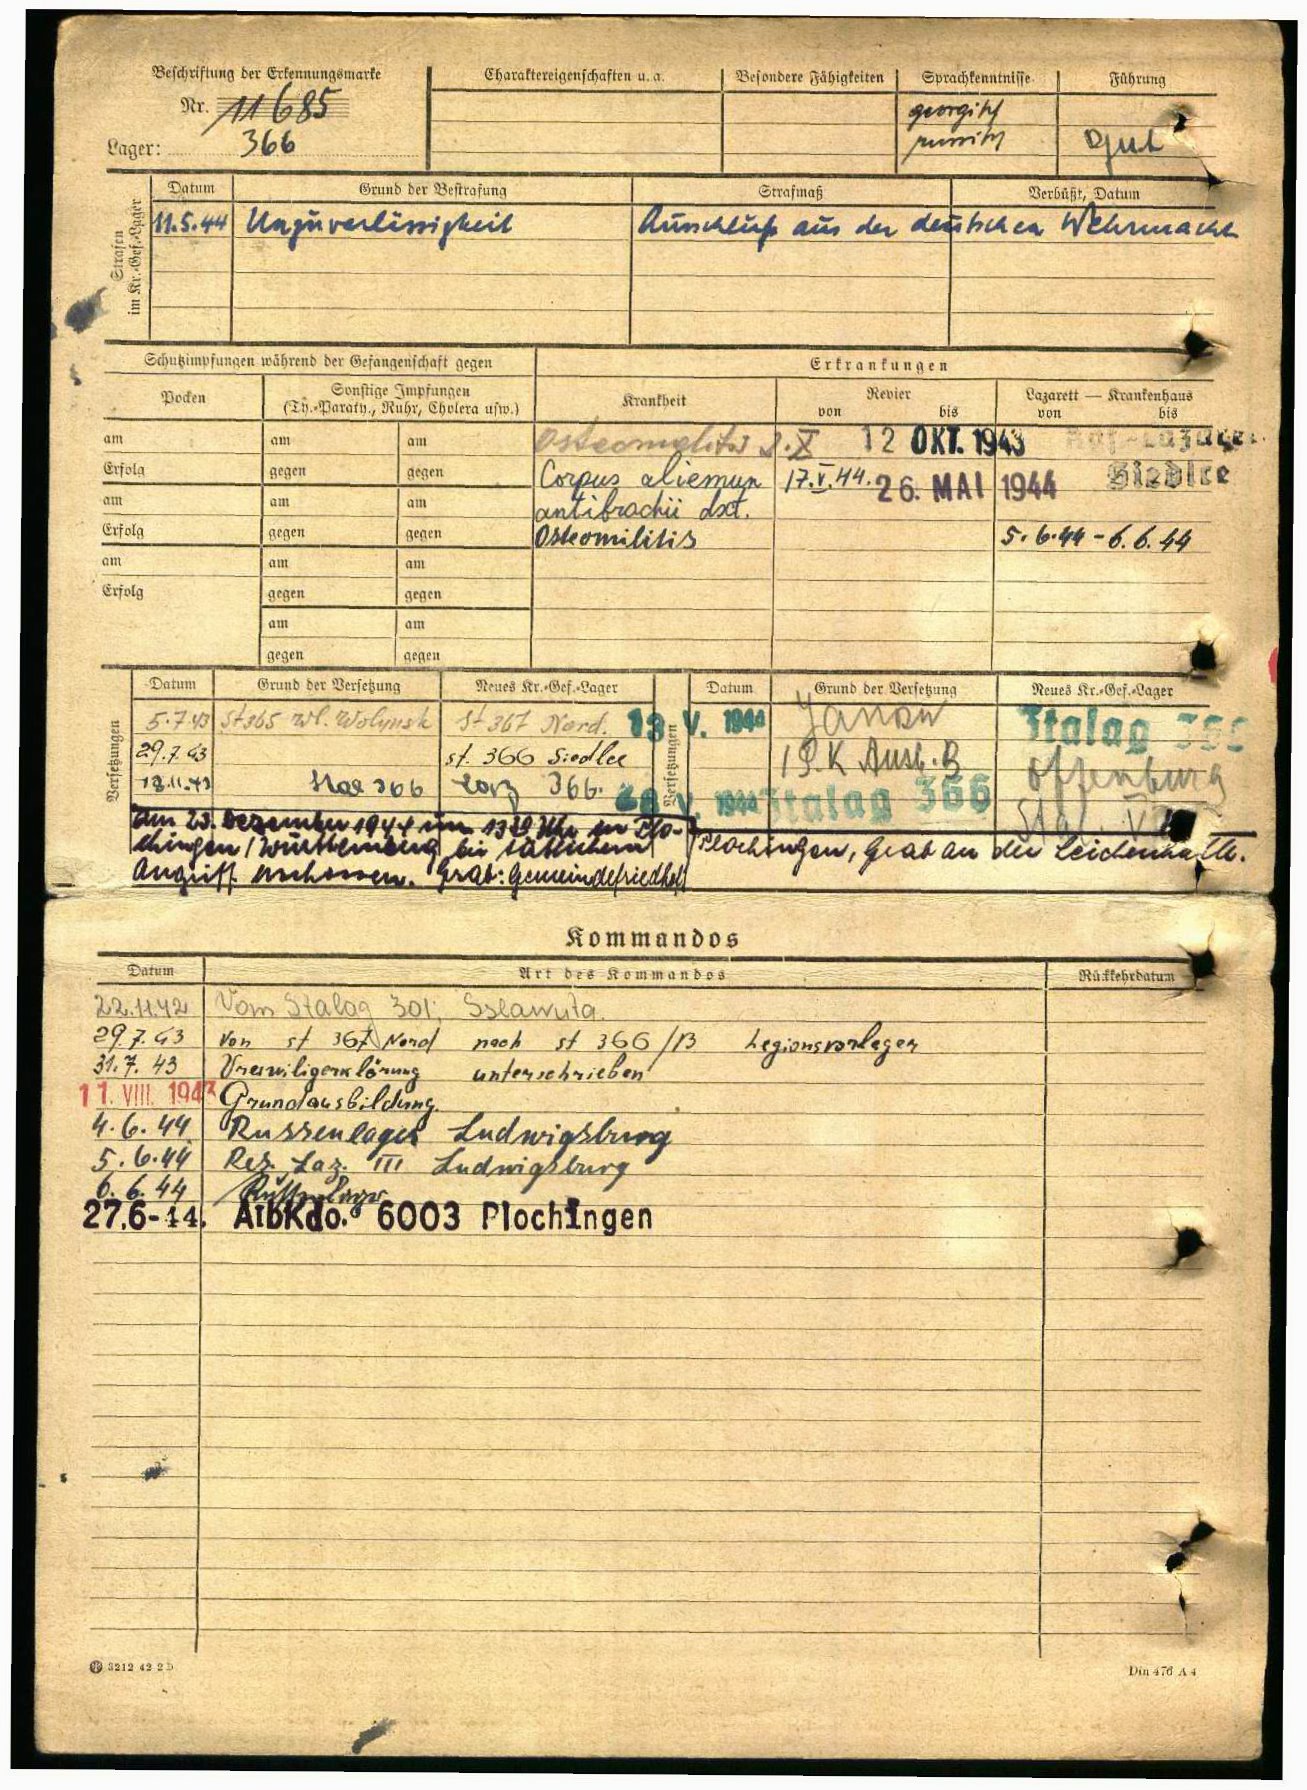 Beschriftung der Erkennungsmarke
Nr. 11685
Lager: 366
Charaktereigenschaften u. a.
Besondere Fähigkeiten
Sprachkenntnisse
georgisch
russisch
Führung
Gut
Strafen im Kr.-Gef.-Lager
Datum Grund der Bestrafung Strafmaß Verbüßt, Datum
11.5.44 Unzuverlässigkeit Ausschluß aus der deutschen Wehrmacht
Schutzimpfungen während der Gefangenschaft gegen
Erkrankungen
Pocken
Sonstige Impfungen
(Ty.-Paraty., Ruhr, Cholera usw.)
Krankheit
Revier
von bis
Lazarett — Krankenhaus
von bis
am am am Osteomelitis 2.X 12 OKT. 1943
Erfolg gegen gegen Corpus aliemun 17.V.44. 26. MAI 1944 Siedlce
am am am antibrachii dxt.
Erfolg gegen gegen Osteomilitis 5.6.44 - 6.6.44
am am am
Erfolg gegen gegen
am am
gegen gegen
Versetzungen
Datum Grund der Versetzung Neues Kr.-Gef.-Lager
5.7.43 St 365 Wl. Wolynsk St 367 Nord.
29.7.43 st. 366 Siedlce
18.11.43 366 366.
Versetzungen
Datum Grund der Versetzung Neues Kr.-Gef.-Lager
13 V. 1944 Janow Stalag 366
Ausb. B Offenburg
V. 1944 Stalag 366 Stal. V
Am 23. Dezember 1944 um Uhr in Plo-
chingen/Württemberg bei tätlichem
Angriff erschossen. Grab: Gemeindefriedhof
Plochingen, Grab an der Leichenhalle.
Kommandos
Datum Art des Kommandos Rückkehrdatum
22.11.42 Vom Stalag 301, Sslawuta.
29.7.43 Von st 367 Nord nach st 366/B Legionsvorlager
31.7.43 Vreiwiligerklärung unterschrieben
11. VIII. 1943 Grundausbildung.
4.6.44 Russenlager Ludwigsburg
5.6.44 Res. Laz. III Ludwigsburg
6.6.44 Russenlager
27.6-44. ArbKdo. 6003 Plochingen
3212 42 2 D
Din 476 A 4